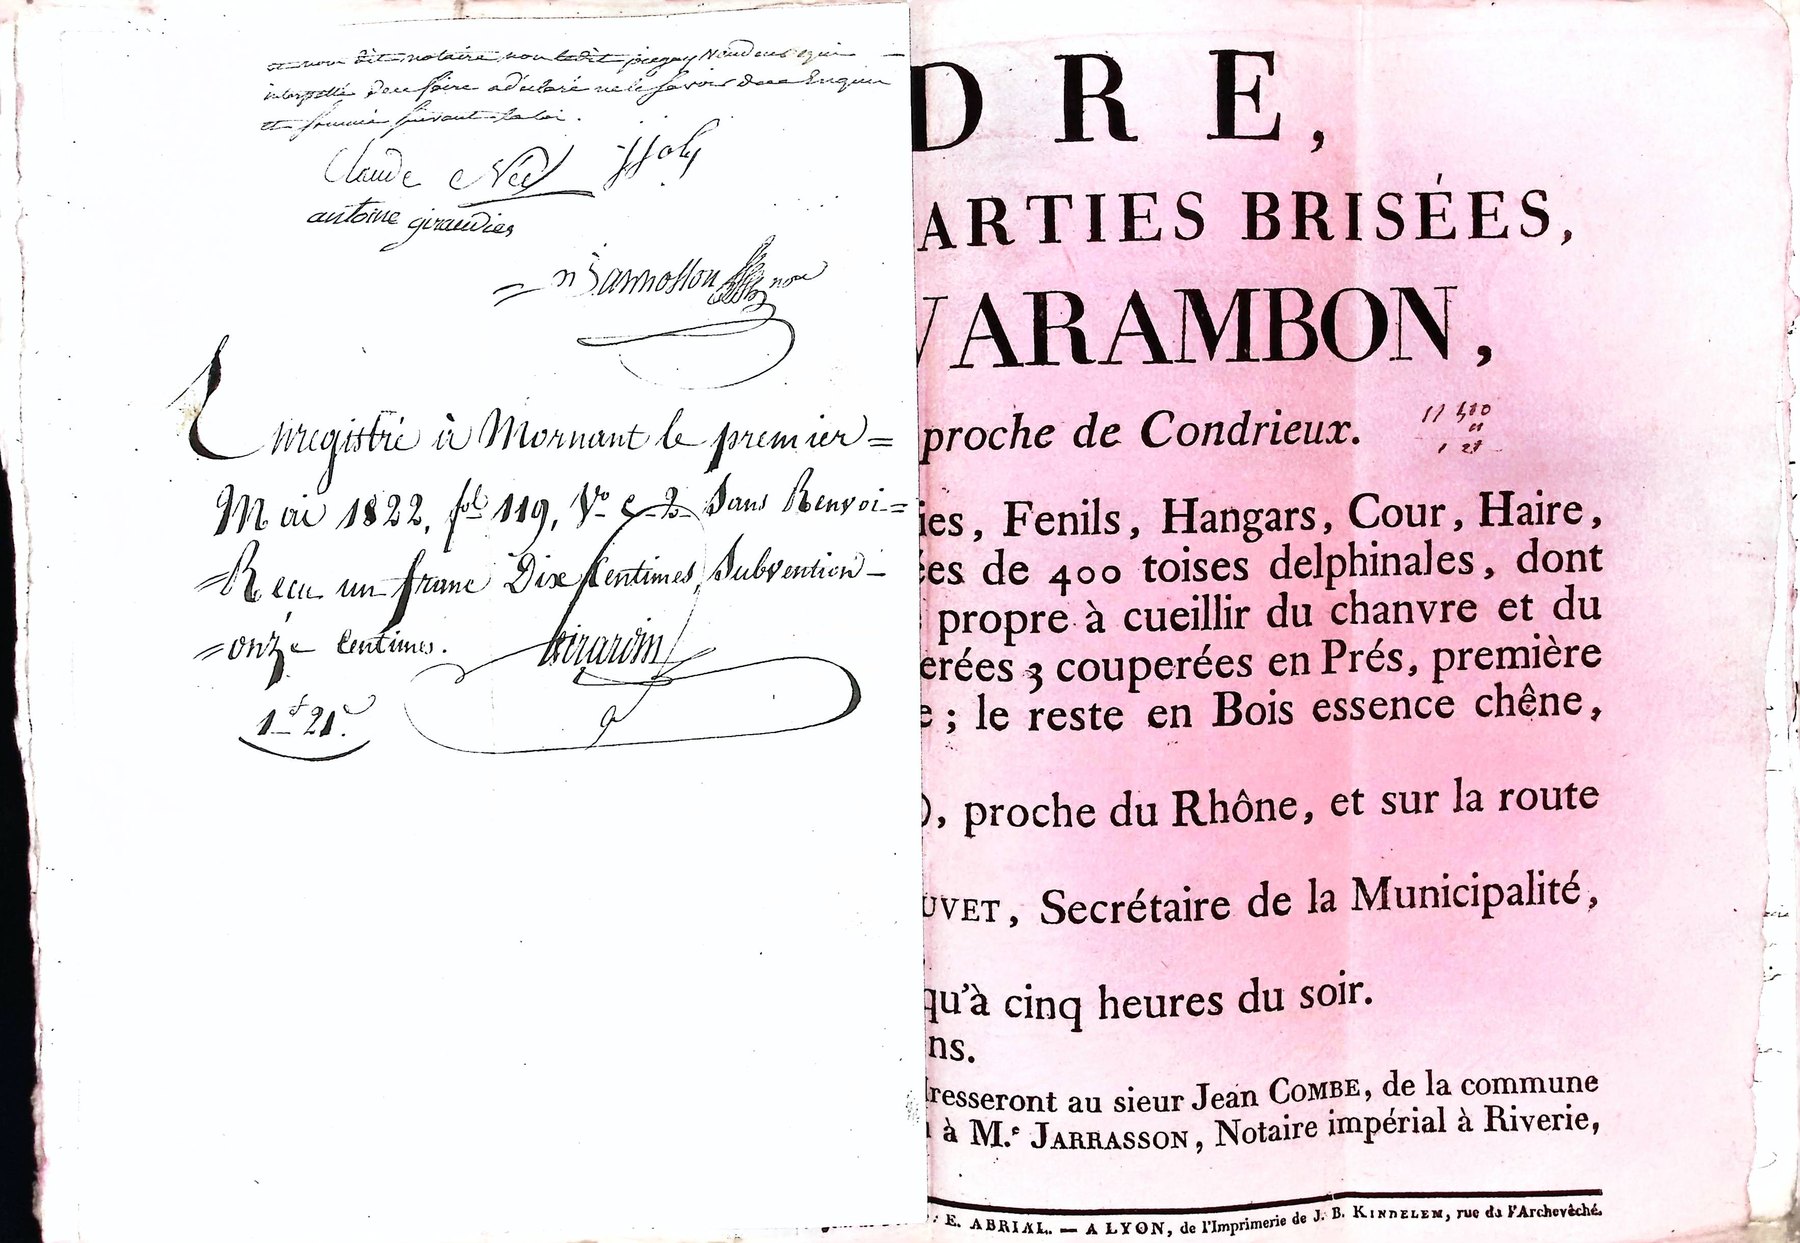 et nous dit notaire non ledit piegay Vendeur qui
interpellé de ce faire a déclaré ne le savoir de ce Enquis
et sommé suivant la loi.
Claude Née JJoly
antoine giraudier
Enregistré à Mornant le premier =
Mai 1822, fol 119, Vo c 2 Sans Renvoi =
= Reçu un franc Dix Centimes, Subvention -
= onze Centimes. Girardin
1f 21c.
DRE,
ARTIES BRISÉES,
VARAMBON,
proche de Condrieux.
ies, Fenils, Hangars, Cour, Haire,
es de 400 toises delphinales, dont
propre à cueillir du chanvre et du
erées 3 couperées en Prés, première
e ; le reste en Bois essence chêne,
), proche du Rhône, et sur la route
UVET, Secrétaire de la Municipalité,
qu'à cinq heures du soir.
ns.
resseront au sieur Jean COMBE, de la commune
à M.e JARRASSON, Notaire impérial à Riverie,
E. ABRIAL. — A LYON, de l'Imprimerie de J. B. KINDELEM, rue de l'Archevêché.